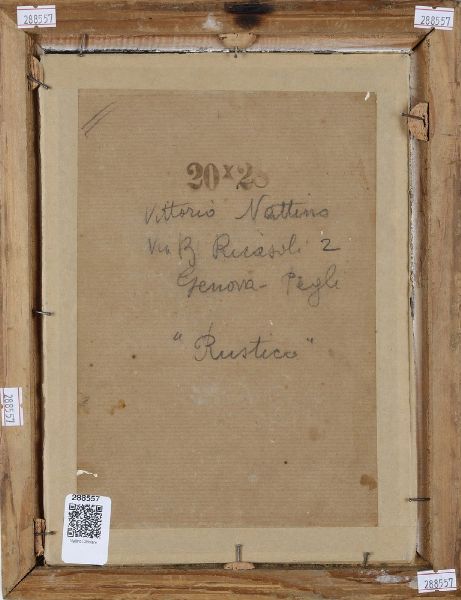 288557
288557
20x28
Vittorio Nattino
Via B Ricasoli 2
Genova - Pegli
"Rustico"
288557
288557
288557